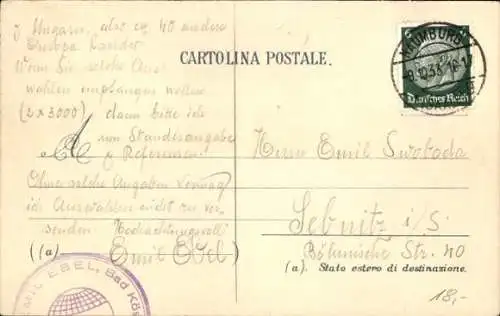 CARTOLINA POSTALE.
NAUMBURG
Deutsches Reich
J Ungarn, also ca 40 andere
Europa Länder
Wenn Sie solche Aus-
wahlen empfangen wollen
(2x3000) dann bitte ich
um Standesangabe
& Referenzen
Ohne solche Angaben vermag
ich Auswahlen nicht zu ver-
senden. Hochachtungsvoll
(a) Emil Ebel)
EMIL EBEL, Bad Kös
Herrn Emil Swoboda
Sebnitz i/S.
Böhmische Str. 40
(a). Stato estero di destinazione.
18,-